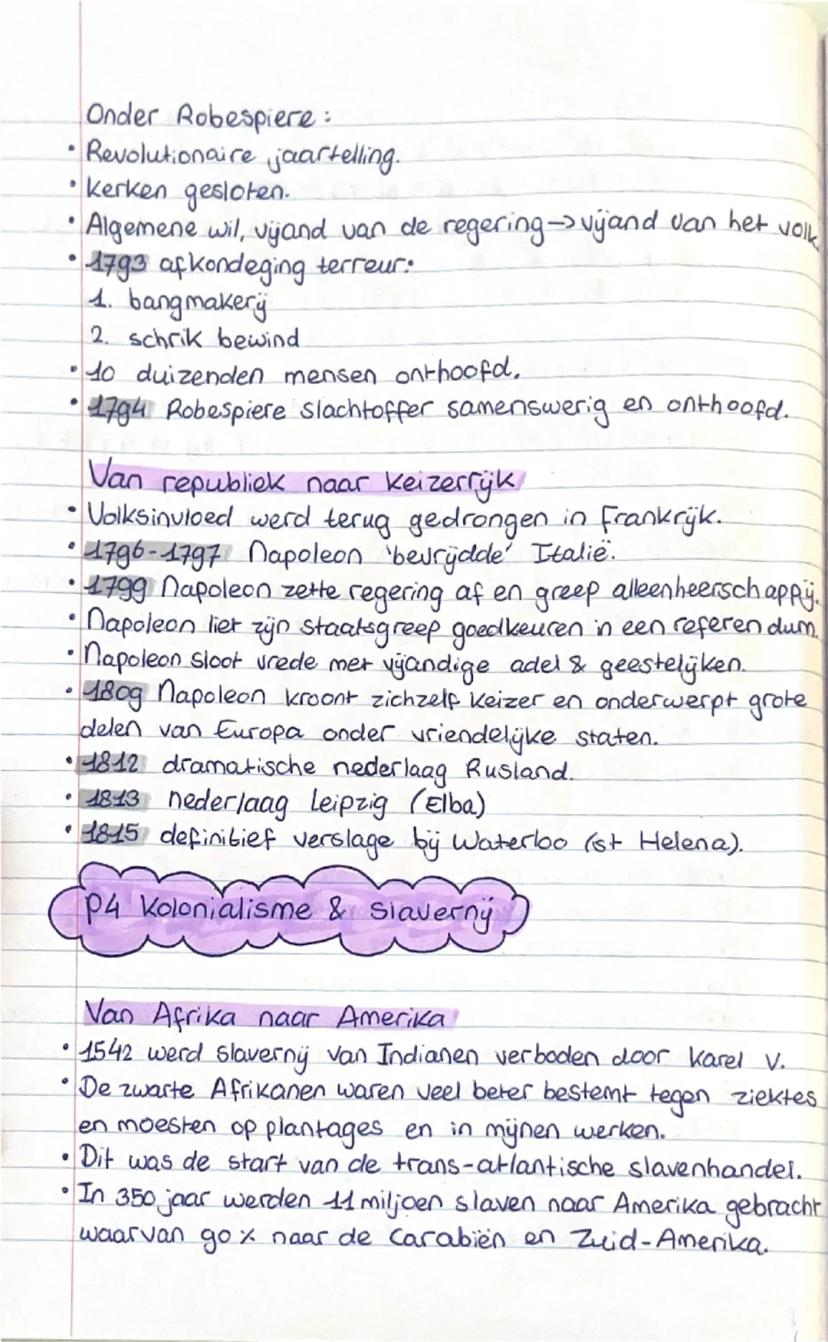 Onder Robespiere:
• Revolutionaire jaartelling.
• Kerken gesloten.
• Algemene wil, vijand van de regering → vijand van het volk
• 1793 afkondeging terreur:
1. bangmakerij
2. schrik bewind
• 10 duizenden mensen onthoofd.
• 1794 Robespiere slachtoffer samenswerig en onthoofd.
Van republiek naar keizerrijk
• Volksinvloed werd terug gedrongen in frankrijk.
• 1796-1797 Napoleon 'bevrijdde' Italië.
• 1799 Napoleon zette regering af en greep alleenheerschappij.
• Napoleon liet zijn staatsgreep goedkeuren in een referendum.
• Napoleon sloot vrede met vijandige adel & geestelijken.
• 1809 Napoleon kroont zichzelf keizer en onderwerpt grote
delen van Europa onder vriendelijke staten.
• 1812 dramatische nederlaag Rusland.
• 1813 nederlaag leipzig (Elba)
• 1815 definitief verslage bij Waterloo (st Helena).
P4 Kolonialisme & slavernij
Van Afrika naar Amerika
• 1542 werd slavernij van Indianen verboden door Karel V.
• De zwarte Afrikanen waren veel beter bestemt tegen ziektes
en moesten op plantages en in mijnen werken.
• Dit was de start van de trans-atlantische slavenhandel.
• In 350 jaar werden 11 miljoen slaven naar Amerika gebracht
waarvan 90% naar de Carabiën en Zuid-Amerika.